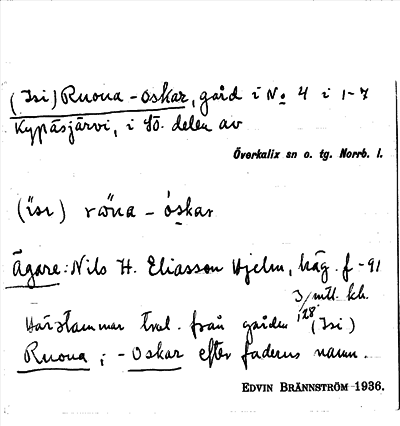 (Isi) Ruona - Oskar, gård i No 4 i 1-7
Kypäsjärvi, i SÖ. delen av
Överkalix sn o. tg. Norrb. l.
(isı) rɷ̈na - óskar
Ägare: Nils H. Eliasson Hjelm, häg. f -91
3/128 mtl. kr.
Härstammar tral. från gården (Isi)
Ruona, - Oskar efter faderns namn.
EDVIN BRÄNNSTRÖM 1936.